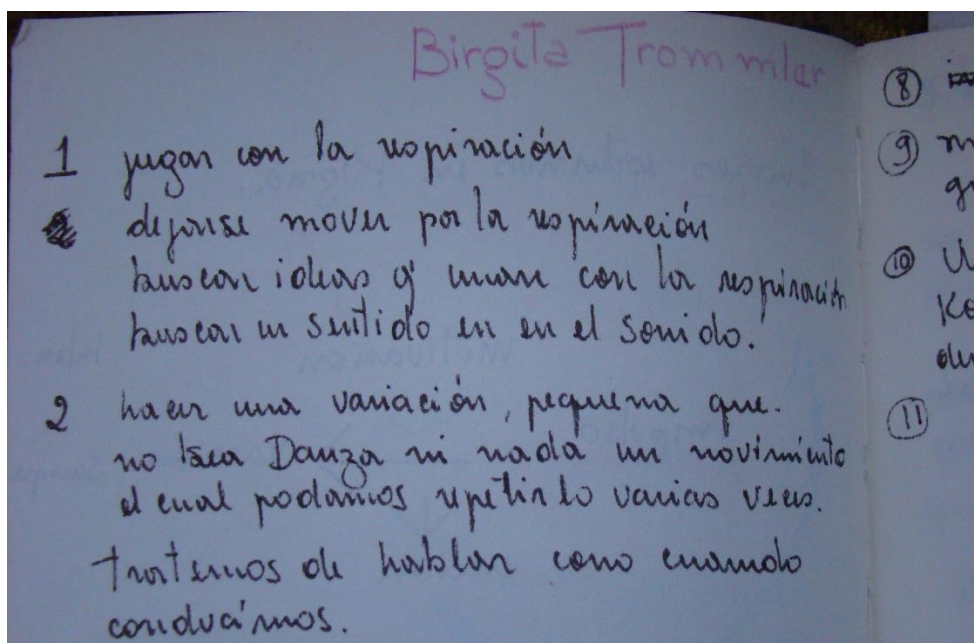 Birgita Trommler
1 jugar con la respiración
dejarse mover por la respiración
buscar ideas q' unan con la respiración
buscar un sentido en en el sonido.
2 hacer una variación, pequena que.
no sea Danza ni nada un novimiento
el cual podamos repetirlo varias veces.
tratemos de hablar como cuando
conducímos.
8
9
10
11